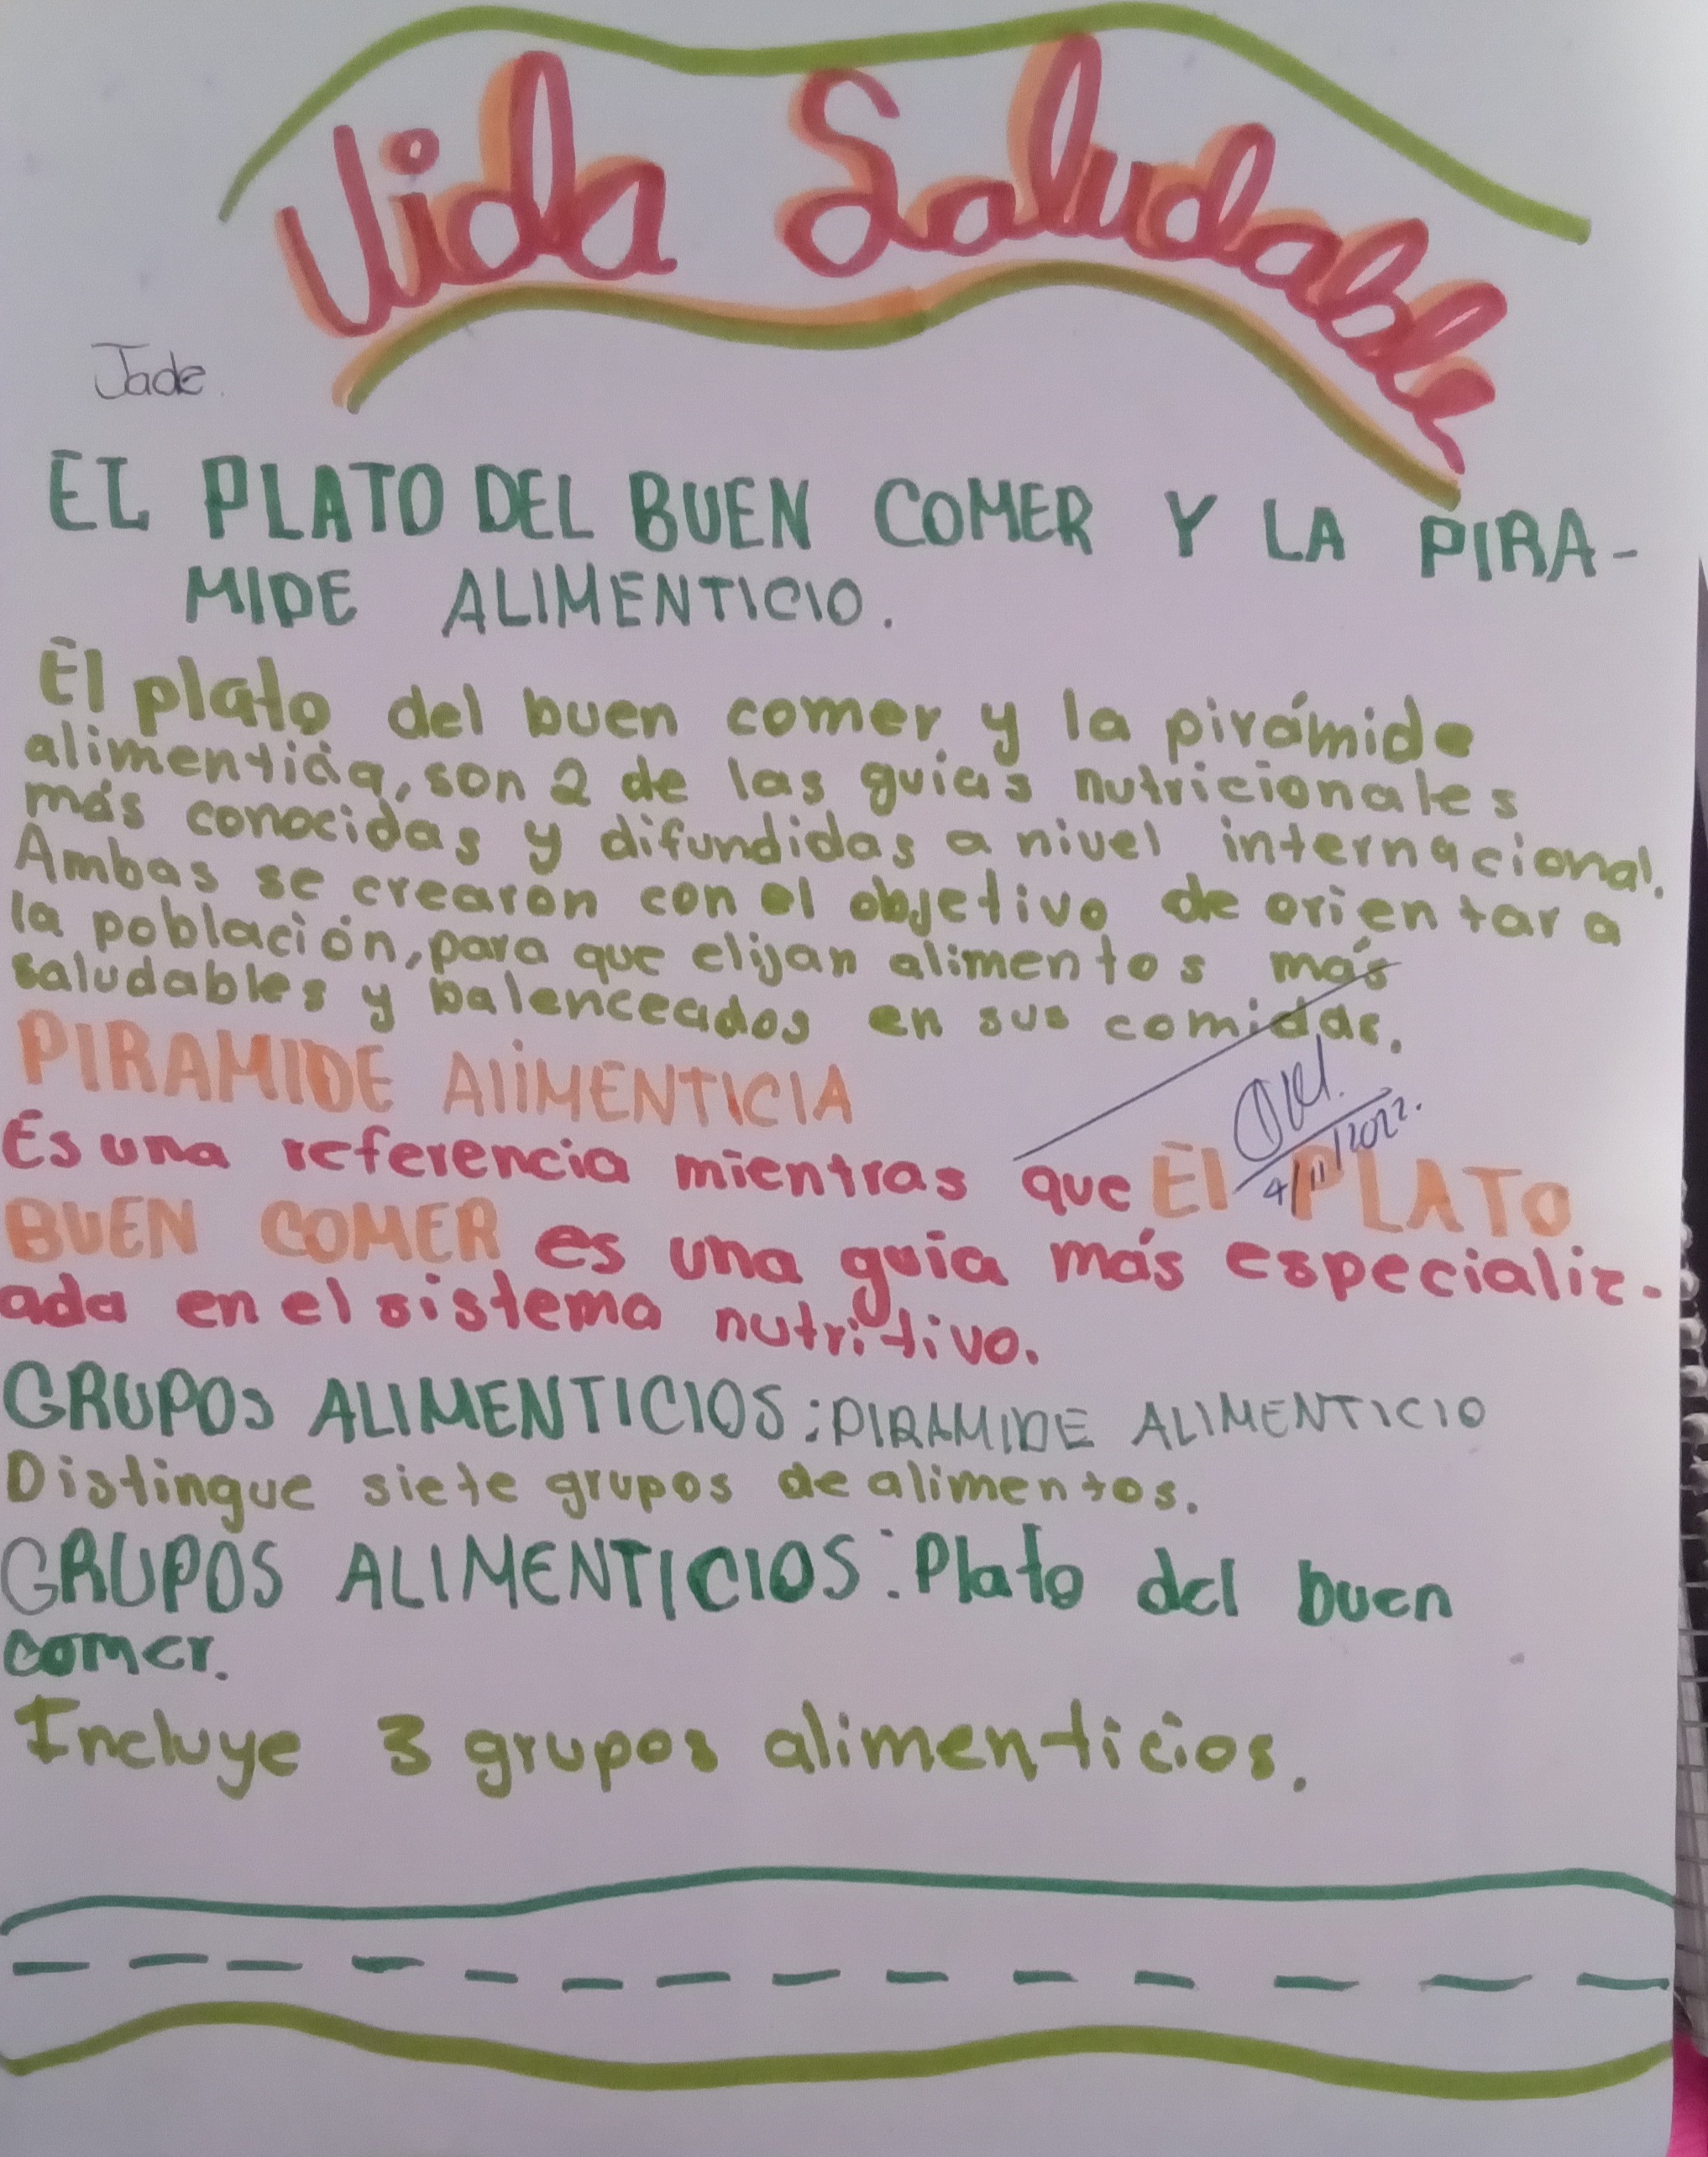 Vida Saludable
Jade.
EL PLATO DEL BUEN COMER Y LA PIRA-
MIDE ALIMENTICIO.
El plato del buen comer y la pirámide
alimenticia, son 2 de las guias nutricionales
más conocidas y difundidas a nivel internacional.
Ambas se crearon con el objetivo de orientar a
la población, para que elijan alimentos más
saludables y balenceados en sus comidas.
PIRAMIDE AliMENTICIA
Es una referencia mientras que El PLATO
BUEN COMER es una guia más especializ-
ada en el sistema nutritivo.
4/11/2022.
GRUPOS ALIMENTICIOS: PIRAMIDE ALIMENTICIO
Distingue siete grupos de alimentos.
GRUPOS ALIMENTICIOS: Plato del buen
comer.
Incluye 3 grupos alimenticios.